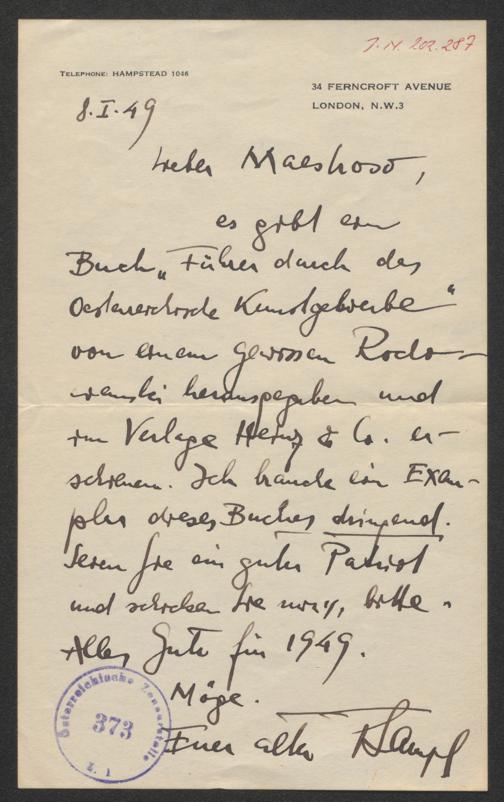 I.N. 202.287
TELEPHONE: HAMPSTEAD 1046
34 FERNCROFT AVENUE
LONDON, N.W.3
8.I.49
Lieber Maestroso,
es gibt ein
Buch „Führer durch das
Oesterreichische Kunstgewerbe“
von einem gewissen Rodo-
wanski herausgegeben und
im Verlage Heinz & Co. er-
schienen. Ich brauche ein Exem-
plar dieses Buches dringend.
Seien Sie ein guter Patriot
und schicken Sie mirs, bitte.
Alles Gute für 1949.
Möge.
Euer alter
Österreichische Zensurstelle
373